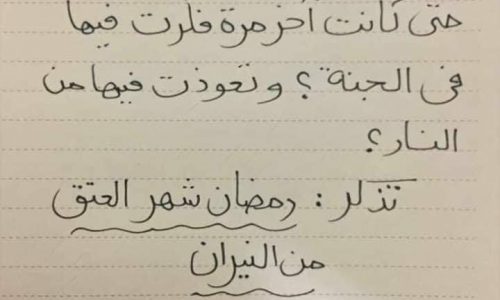 متى كانت آخر مرة فكرت فيها
في الجنة؟ وتعوذت فيها من
النار؟
تذكر: رمضان شهر العتق
من النيران